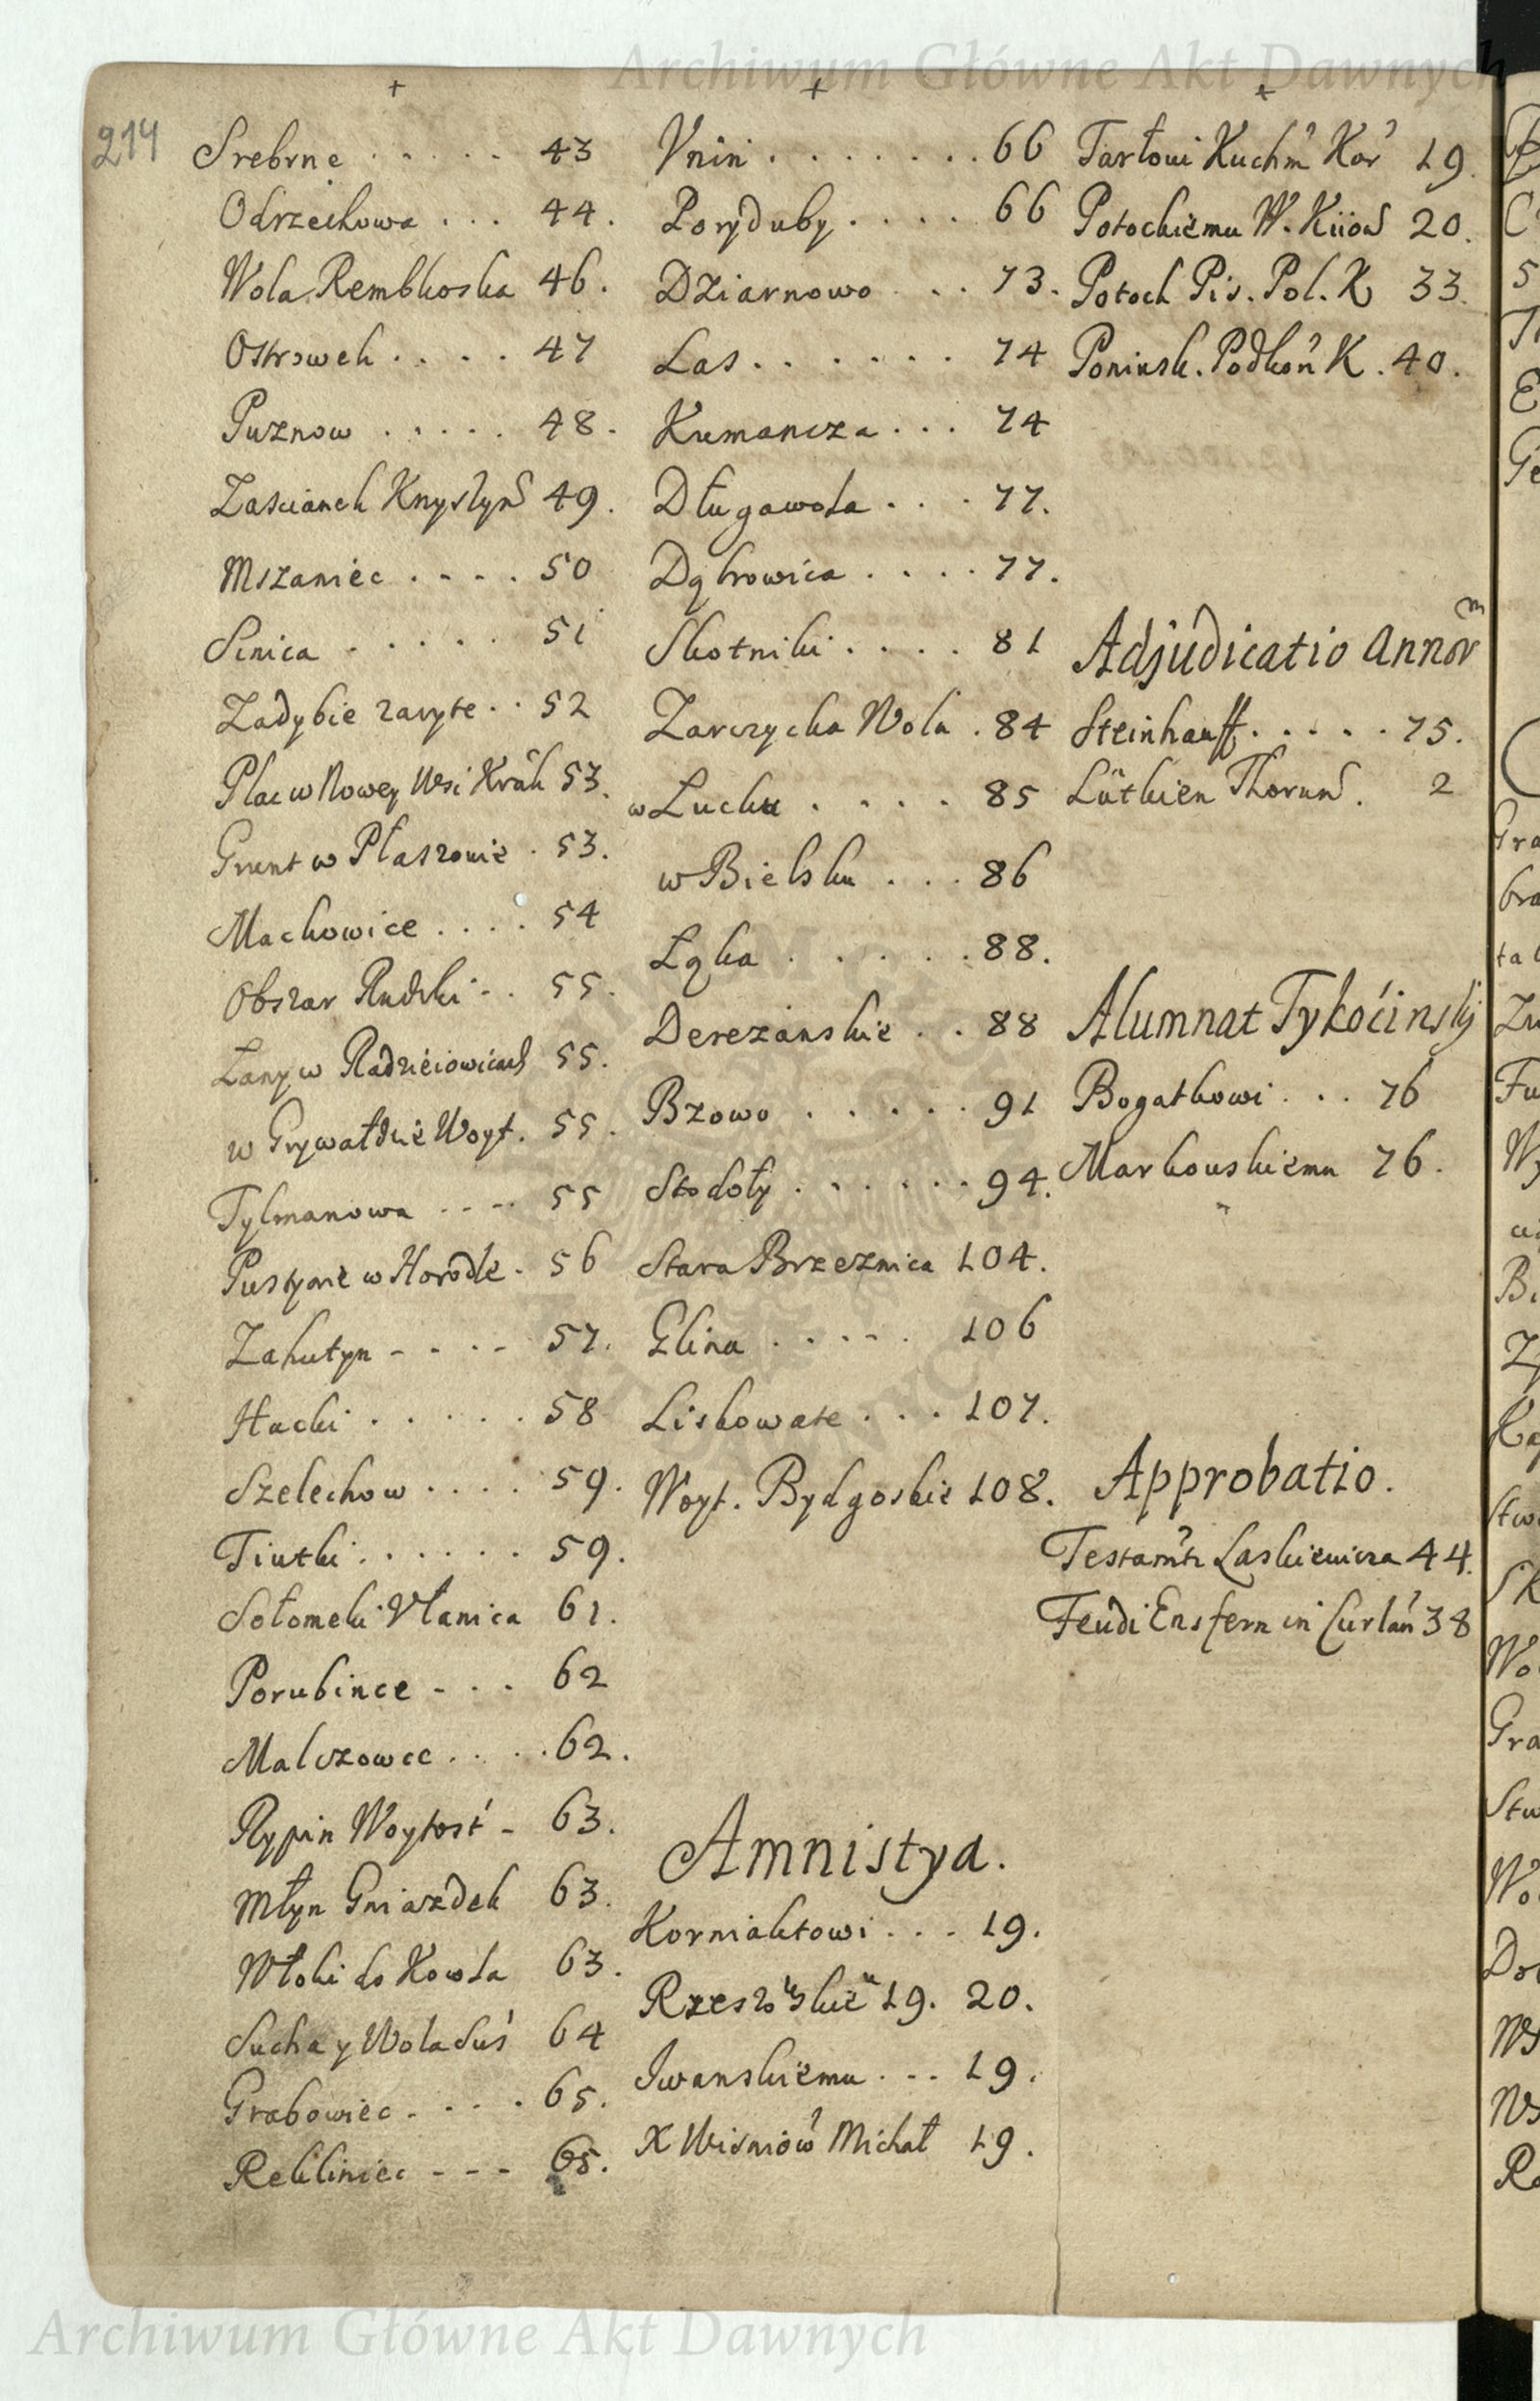 Archiwum Główne Akt Dawnych
214
Srebrne . . . . . 43
Odrzechowa . . . 44.
Wola Rembkoska 46.
Ostrowek . . . . 47
Puznow . . . . . 48.
Zascianek Knyszyn 49.
Mszaniec . . . . 50
Sinica . . . . 51
Zadybie zaryte . . 52
Plac w Nowey Wsi Krak 53.
Grunt w Płaszowie . 53.
Machowice . . . . 54
Obszar Rudzki . . 55.
Lany w Radzieiowicach 55.
w Grywałdzie Woyt. 55.
Tylmanowa - - - - 55
Pustynie w Horodle . 56
Zahutyn - - - - 57.
Hacki . . . . . 58
Szelechow . . . . 59.
Tiutki . . . . . . 59.
Sołomeki Vłanica 61.
Porubince - . . 62
Malczowce . . . . 62.
Rypin Woytost - 63.
Młyn Gniazdek 63.
Włoki do Kowla 63.
Sucha y Wola Sus 64
Grabowiec . . . . 65.
Rekliniec - - - 65.
Vnin . . . . . . . 66
Poryduby . . . . 66
Dziarnowo . . 73.
Las . . . . . . 74
Kumancza . . . 74
Długawola . . . 77.
Dąbrowica . . . . 77.
Skotniki . . . . 81
Zarczycka Wola . 84
w Lucku . . . . 85
w Bielsku . . . 86
Łąka . . . . . . 88.
Derezanskie . . 88
Bzowo . . . . . . 91
Stodoły . . . . . . 94.
Stara Brzeznica 104.
Glina . . . . . 106
Liskowate . . . 107.
Woyt. Bydgoskie 108.
Amnistya.
Korniaktowi . . . 19.
19. 20.
Iwanskiemu . . . 19.
X Wisniow Michał 19.
Tarłowi Kuchm Kor 19.
Potockiemu W. Kiiow 20.
Potock Pis. Pol. K 33.
Poninsk. Podkon K. 40.
Adjudicatio Annor m
Steinhauff . . . . . 75.
Lütkien Thorun . 2
Alumnat Tykocinsky
Bogatkowi . . . 76
Markouskiemu 76.
Approbatio.
Testamt Laskiewicza 44.
Feudi Ensfern in Curlan 38
Archiwum Główne Akt Dawnych